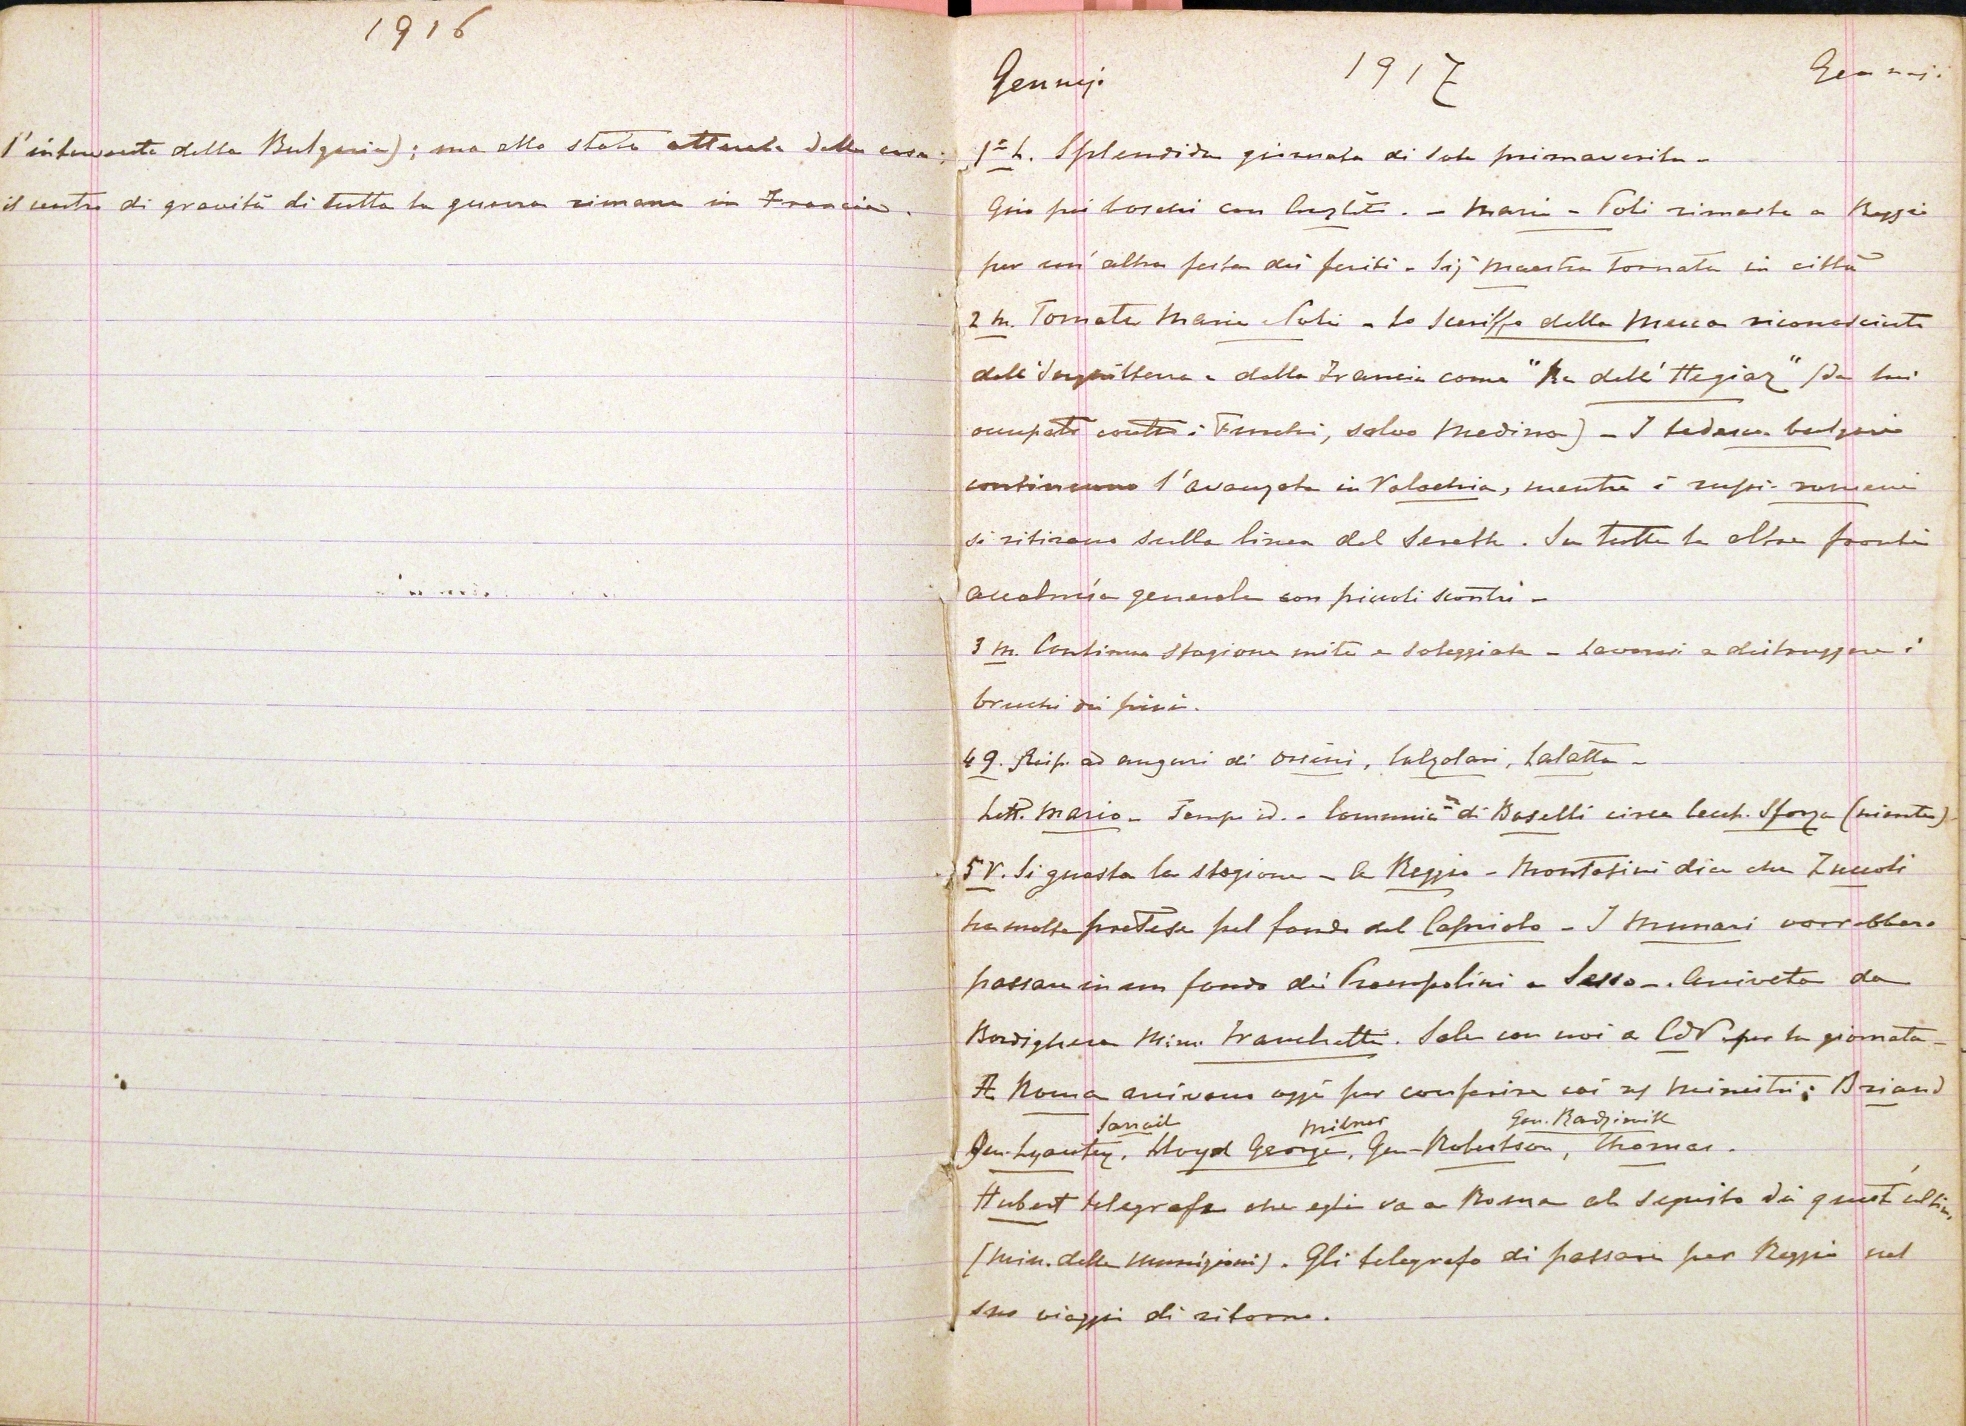 1916
l'intervento della Bulgaria); ma allo stato attuale delle cose,
il centro di gravità di tutta la guerra rimane in Francia.
Gennajo 1917 Gennajo
1º L. Splendida giornata di sole primaverile -
Giro pei boschi con . - Maria - Poli rimaste a Reggio
per un' altra festa dei feriti - Sigª Maestra tornata in città
2 M. Tornate Maria e Poli - Lo Sceriffo della Mecca riconosciuto
dall'Inghilterra e dalla Francia come "Re dell' Hegiaz" (da lui
occupato contro i Turchi, salvo Medina) - I tedesco bulgari
continuano l'avanzata in Valachia, mentre i russi-romeni
si ritirano sulla linea del Sereth. Su tutte le altre fronti
accalmia generale con piccoli scontri -
3 M. Continua stagione mite e soleggiata - Lavorasi a distruggere i
bruchi dei pini.
4 G. Risp. ad auguri di Orsini, Calzolari, Lalatta -
Lett. Mario - Tempo id. - Comunicne di Boselli circa Sforza (niente)
5 V. Si guasta la stagione - A Reggio - Montesini dice che Zuccoli
ha molte pretese pel fondo del Capriolo - I Munari vorrebbero
passare in un fondo dei Prampolini a Sesso -. Arrivata da
Bordighera Mme Franchetti. Sale con noi a CdV. per la giornata -
A Roma arrivano oggi per conferire coi ns ministri: Briand
Sarrail Milner Gen.
Gen. Lyautey, Lloyd George, Gen. Robertson, Thomas.
Hubert telegrafa che egli va a Roma al seguito di quest'ultimo
(min. delle munizioni). Gli telegrafo di passare per Reggio nel
suo viaggio di ritorno.